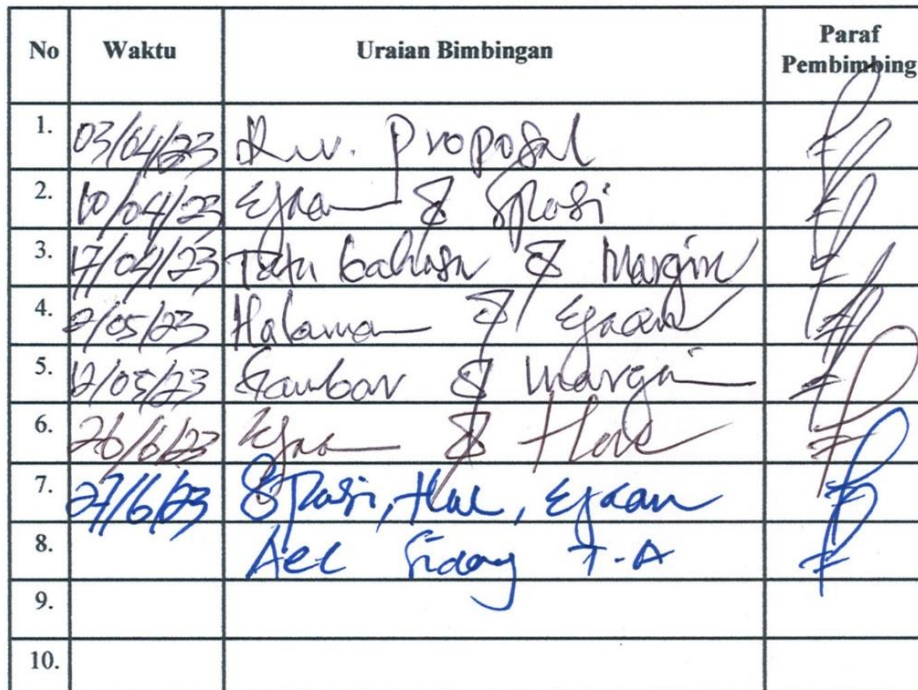 No Waktu Uraian Bimbingan Paraf Pembimbing
1. 03/04/23 Rev. Proposal
2. 10/04/23 Ejaan & Spasi
3. 17/04/23 Tata bahasa & Margin
4. 2/05/23 Halaman & Ejaan
5. 12/05/23 Gambar & Margin
6. 26/6/23 Ejaan & Hal
7. 27/6/23 Spasi, Hal, Ejaan
8. Acc Sidang T.A
9.
10.